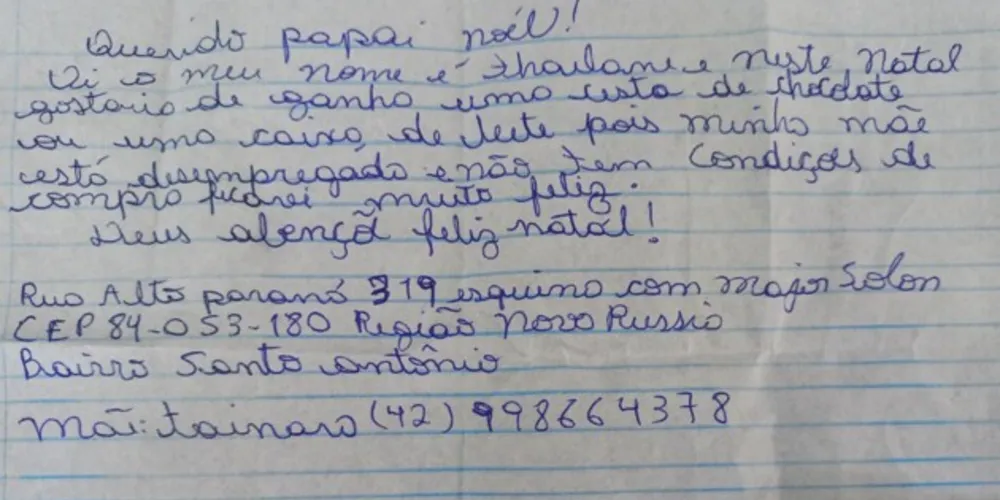 Querido papai nóel!
Oi o meu nome é Thailane e neste Natal
gostaria de ganha uma cesta de chocolate
ou uma caixa de leite pois minha mãe
está disempregada e não tem condições de
compra ficarei muito feliz.
Deus abençõa feliz natal!
Rua Alto paraná 319 esquina com major Solon
CEP 84-053-180 Região Nova Russia
Bairro Santo antônio
Mãe: Tainara (42) 998664378